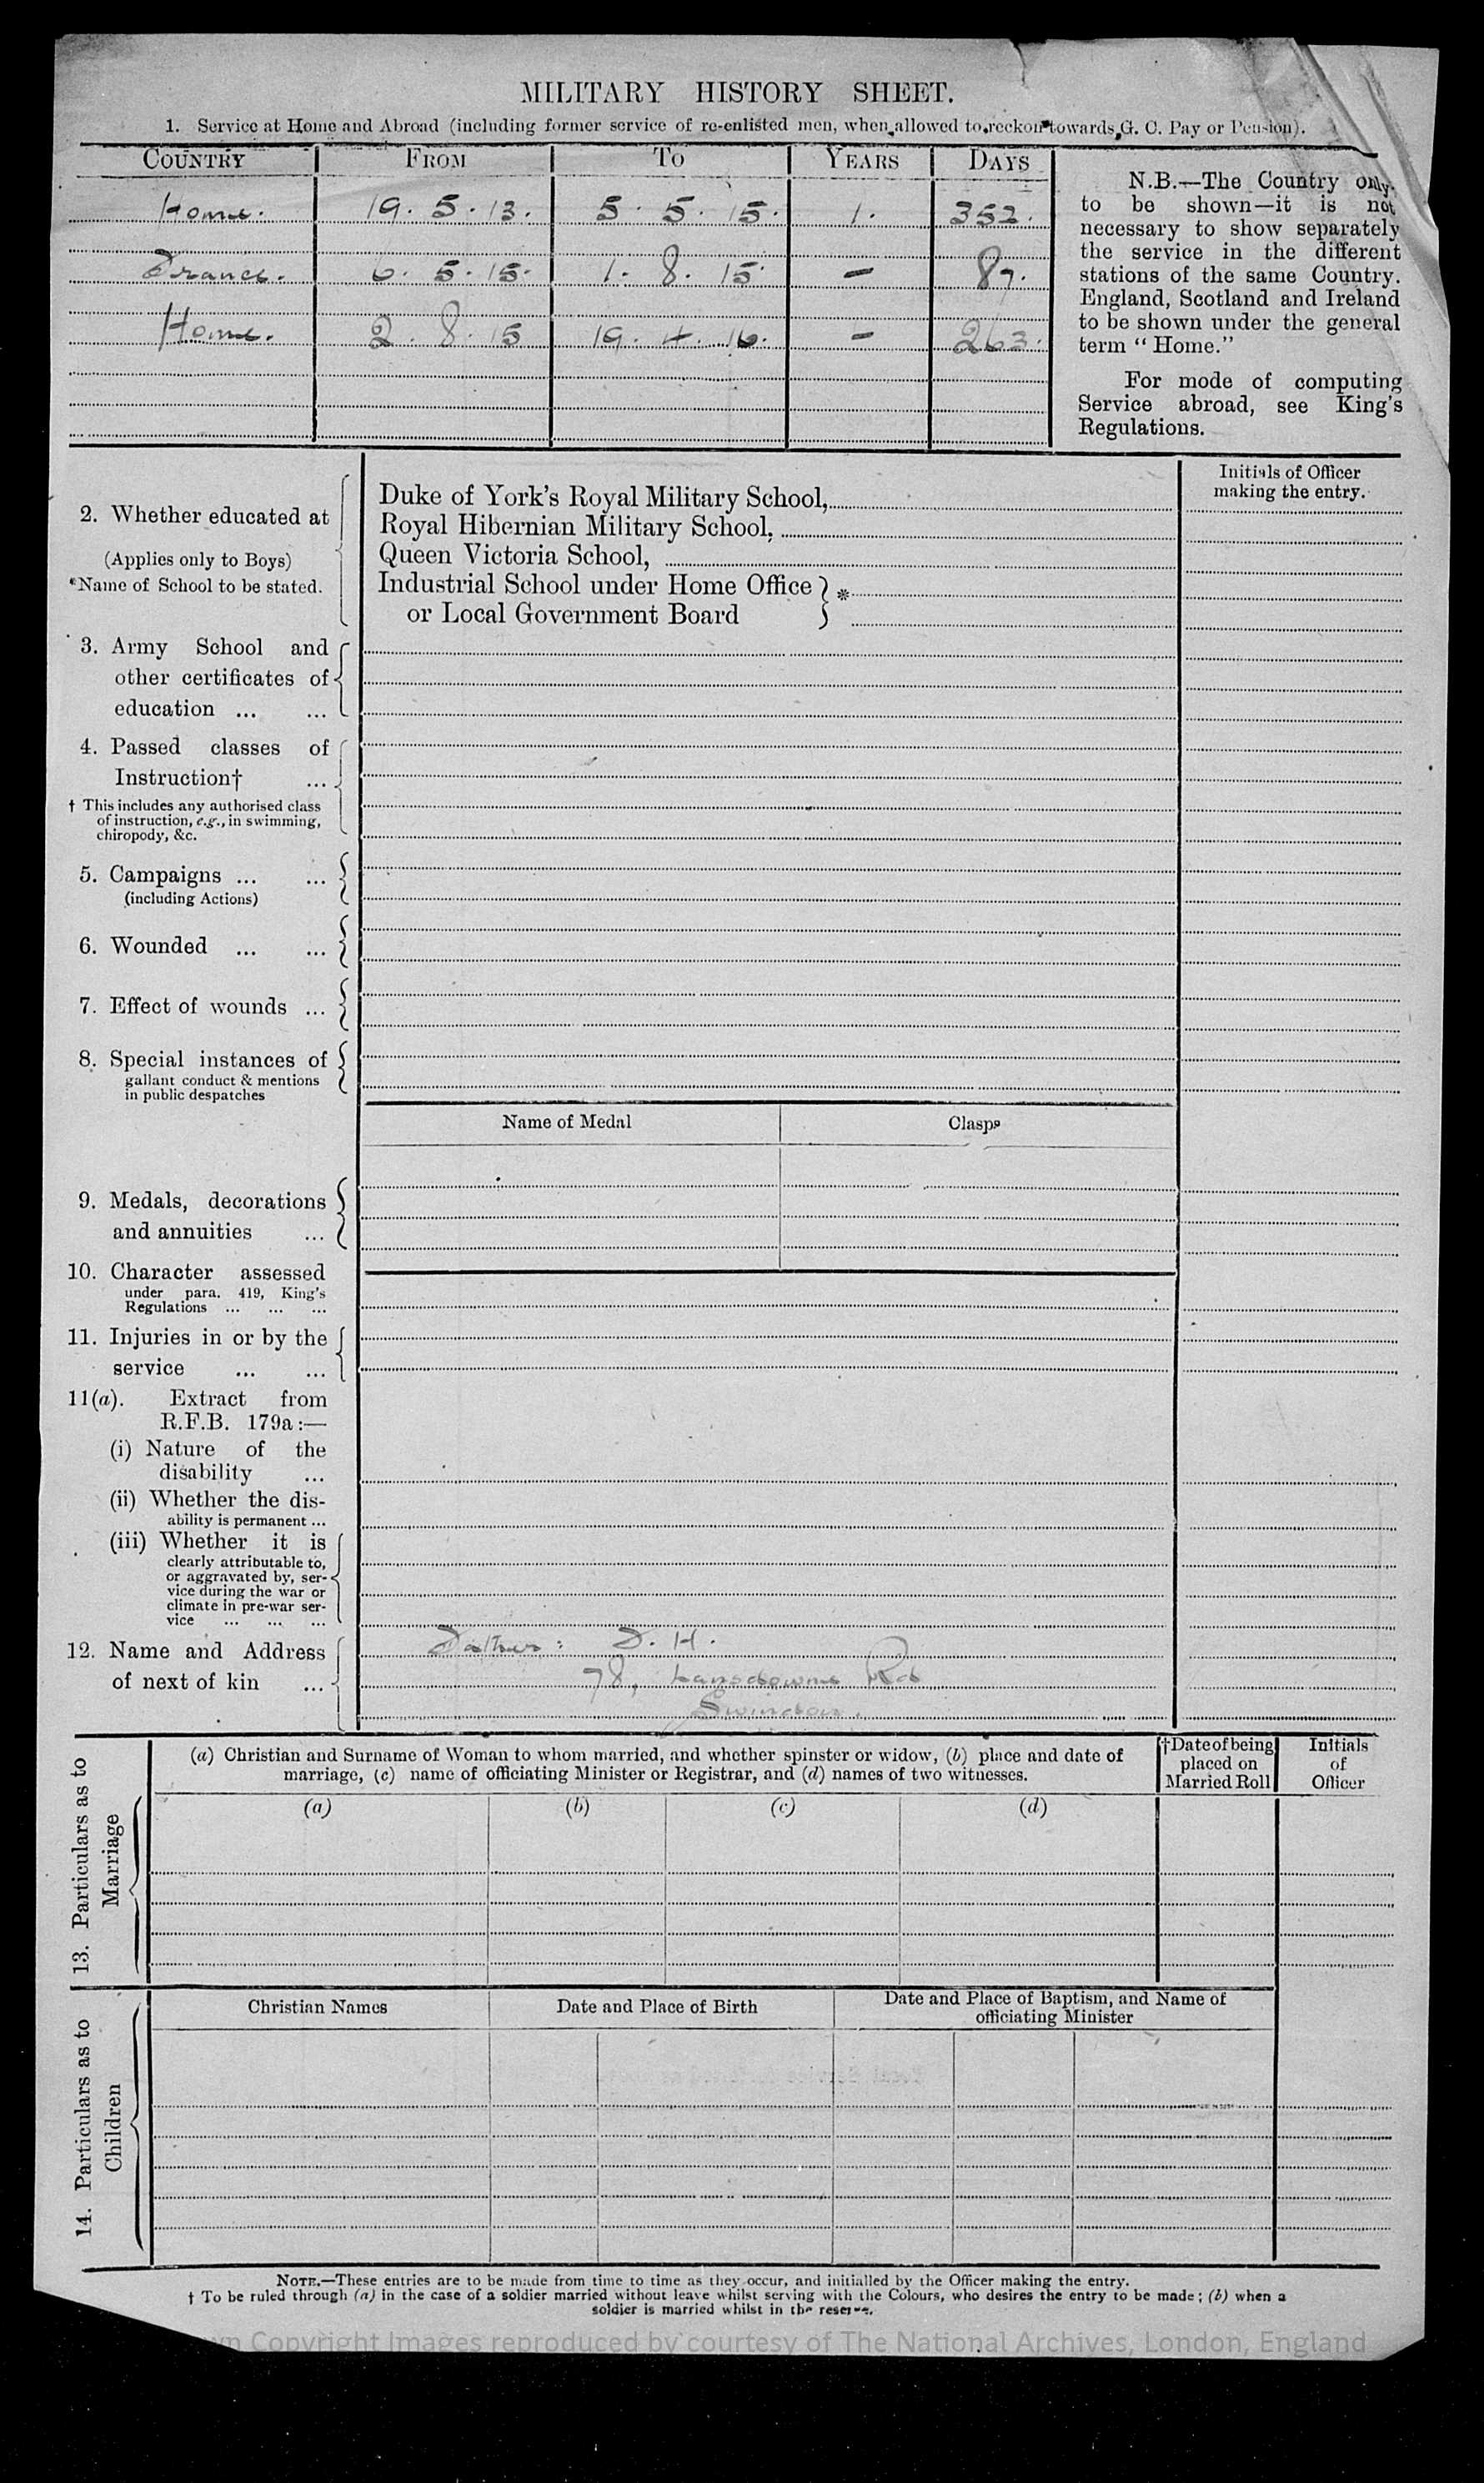 MILITARY HISTORY SHEET.
1. Service at Home and Abroad (including former service of re-enlisted men, when allowed to reckon towards G. C. Pay or Pension).
COUNTRY FROM TO YEARS DAYS
Home. 19. 5. 13. 5. 5. 15. 1. 352.
France. 6. 5. 15. 1. 8. 15. — 87.
Home. 2. 8. 15 19. 4. 16. — 263.
N.B.—The Country only
to be shown—it is not
necessary to show separately
the service in the different
stations of the same Country.
England, Scotland and Ireland
to be shown under the general
term “Home.”
For mode of computing
Service abroad, see King's
Regulations.
Initials of Officer
making the entry.
2. Whether educated at
(Applies only to Boys)
*Name of School to be stated.
Duke of York's Royal Military School,
Royal Hibernian Military School,
Queen Victoria School,
Industrial School under Home Office } *
or Local Government Board
3. Army School and
other certificates of
education ... ...
4. Passed classes of
Instruction† ...
† This includes any authorised class
of instruction, e.g., in swimming,
chiropody, &c.
5. Campaigns ... ...
(including Actions)
6. Wounded ... ...
7. Effect of wounds ...
8. Special instances of
gallant conduct & mentions
in public despatches
Name of Medal Clasps
9. Medals, decorations
and annuities ...
10. Character assessed
under para. 419, King's
Regulations ... ... ...
11. Injuries in or by the
service ... ...
11(a). Extract from
R.F.B. 179a:—
(i) Nature of the
disability ...
(ii) Whether the dis-
ability is permanent ...
(iii) Whether it is
clearly attributable to,
or aggravated by, ser-
vice during the war or
climate in pre-war ser-
vice ... ... ...
12. Name and Address
of next of kin ...
Father: D. H.
78, Lansdowne Rd
Swindon.
13. Particulars as to
Marriage
(a) Christian and Surname of Woman to whom married, and whether spinster or widow, (b) place and date of
marriage, (c) name of officiating Minister or Registrar, and (d) names of two witnesses.
†Date of being
placed on
Married Roll
Initials
of
Officer
(a) (b) (c) (d)
14. Particulars as to
Children
Christian Names Date and Place of Birth
Date and Place of Baptism, and Name of
officiating Minister
NOTE.—These entries are to be made from time to time as they occur, and initialled by the Officer making the entry.
† To be ruled through (a) in the case of a soldier married without leave whilst serving with the Colours, who desires the entry to be made; (b) when a
soldier is married whilst in the reserve.
wn Copyright Images reproduced by courtesy of The National Archives, London, England